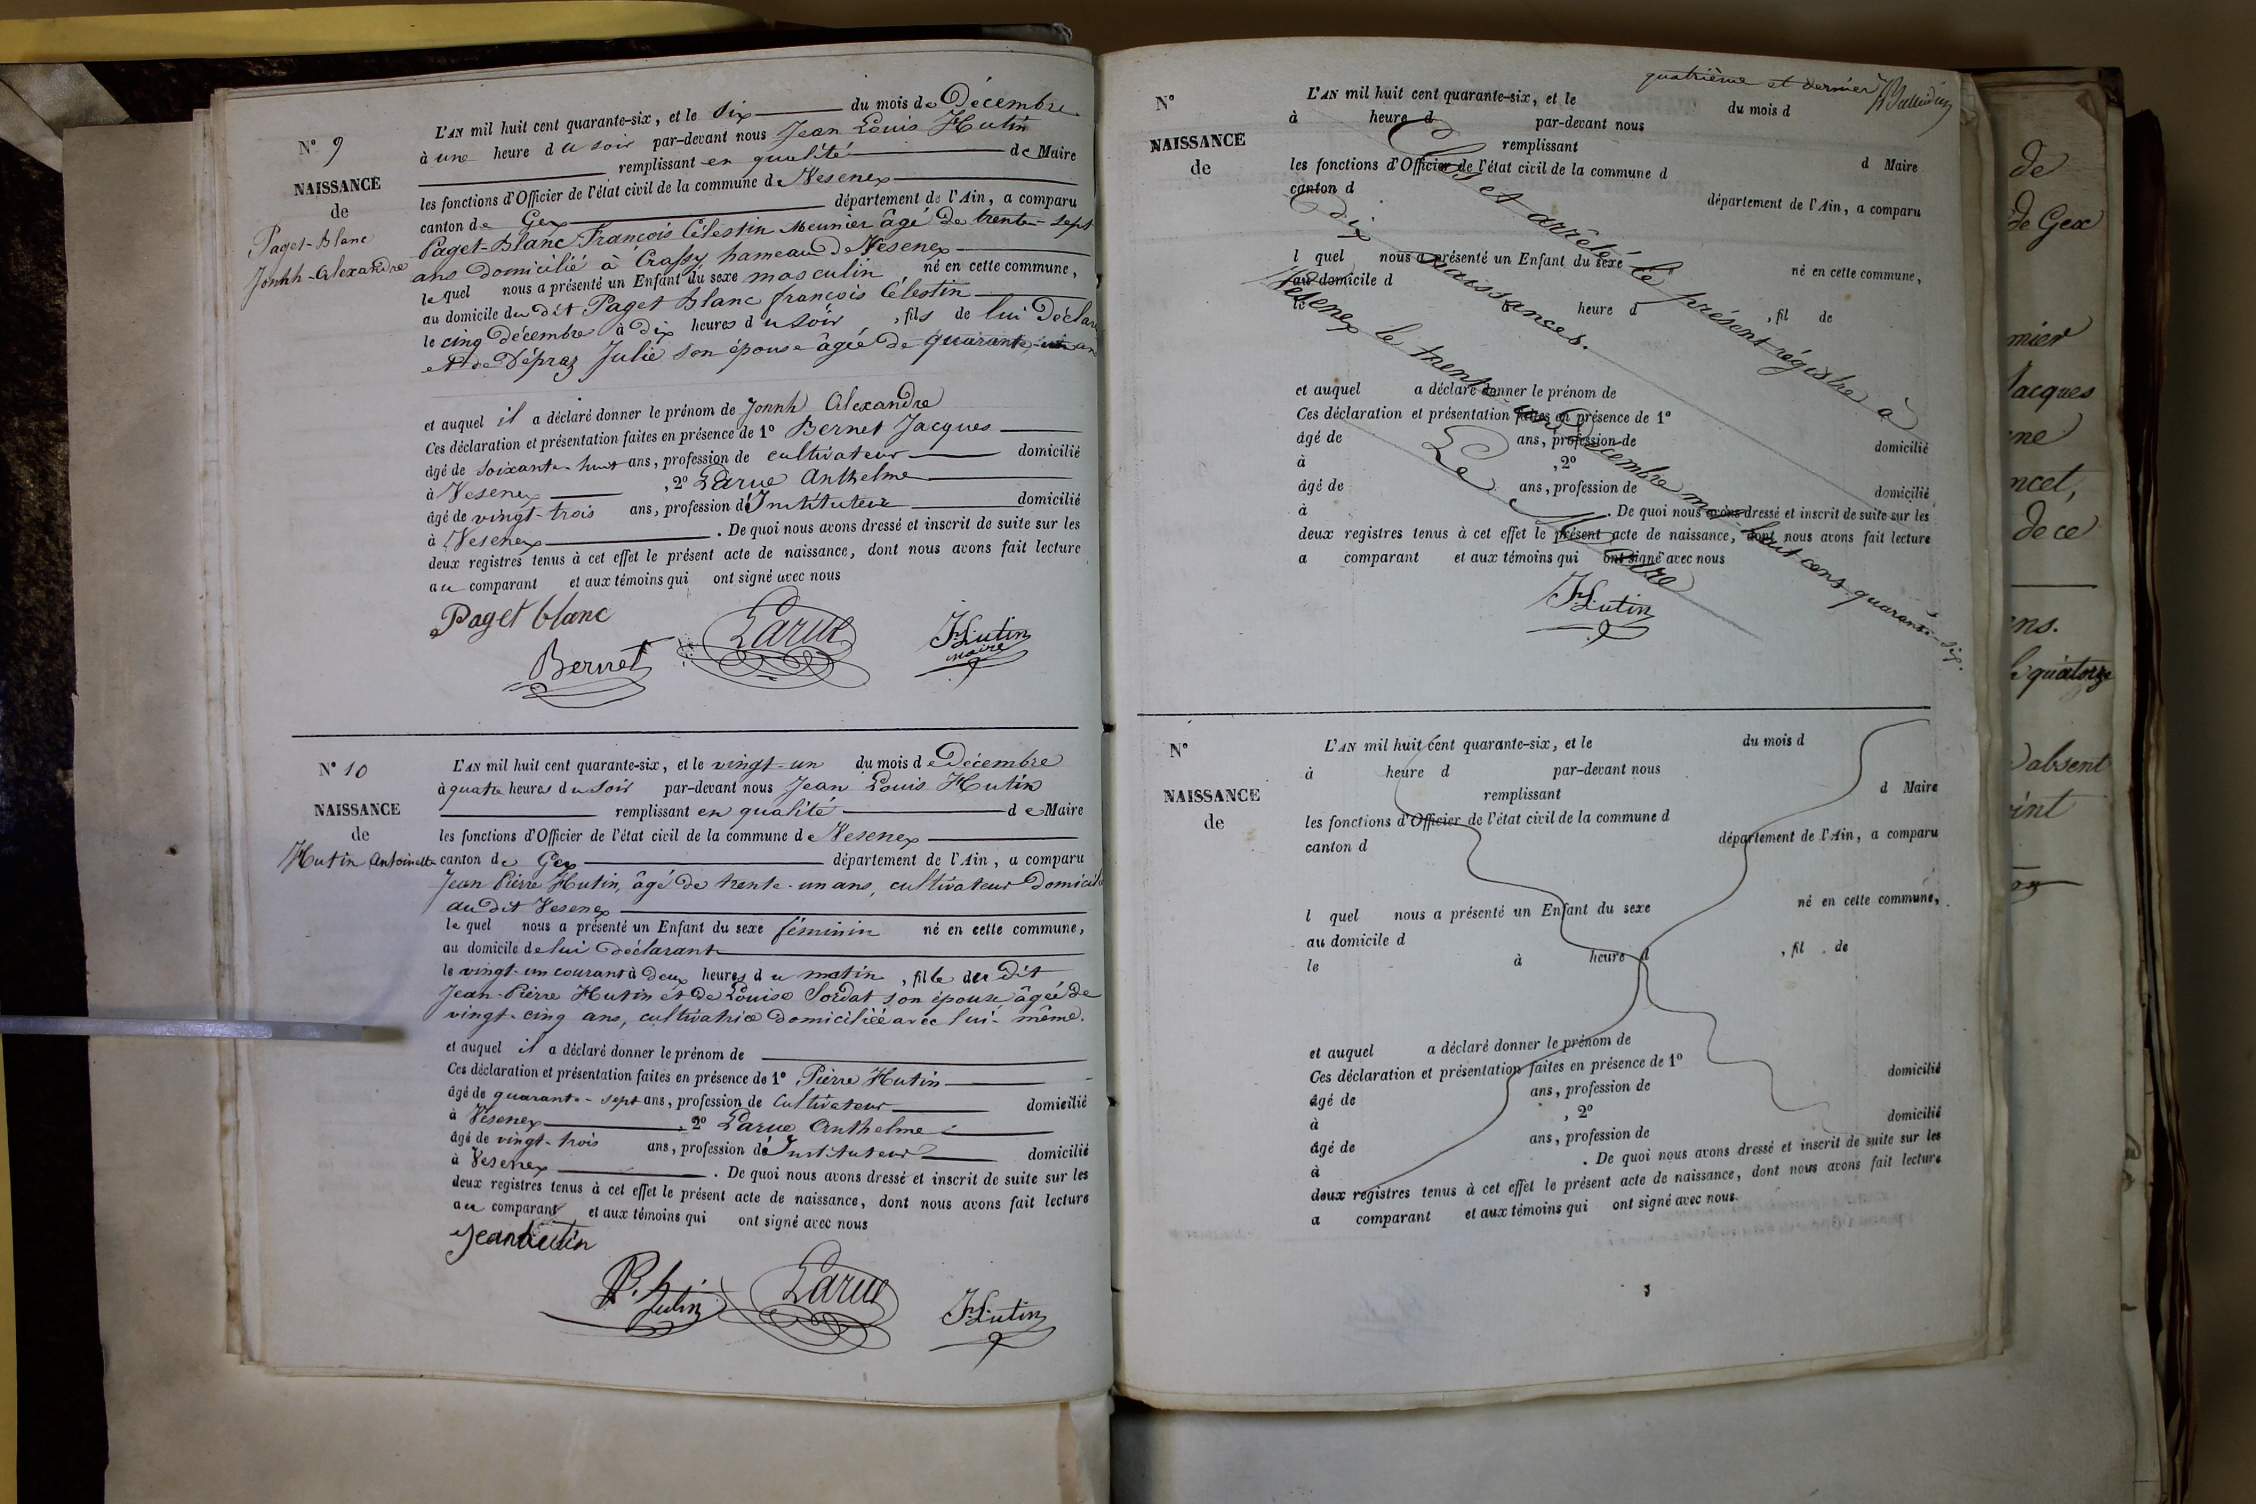 N° 9
NAISSANCE
de
Paget-Blanc
Jonhh-Alexandre
L'AN mil huit cent quarante-six, et le six du mois de Décembre
à une heure du soir par-devant nous Jean Louis Hutin
remplissant en qualité de Maire
les fonctions d'Officier de l'état civil de la commune de Vesenex
canton de Gex département de l'Ain, a comparu
Paget-Blanc François Célestin Meunier âgé de trente-sept
ans domicilié à Crassy hameau de Vesenex
lequel nous a présenté un Enfant du sexe masculin né en cette commune,
au domicile du dit Paget Blanc françois Célestin
le cinq décembre à dix heures du soir, fils de lui Déclarant
et de Dépraz Julie son épouse âgée de quarante-un an
et auquel il a déclaré donner le prénom de Jonnh Alexandre
Ces déclaration et présentation faites en présence de 1° Bernet Jacques
âgé de soixante-huit ans, profession de cultivateur domicilié
à Vesenex, 2° Larue Anthelme
âgé de vingt-trois ans, profession d'Instituteur domicilié
à Vesenex. De quoi nous avons dressé et inscrit de suite sur les
deux registres tenus à cet effet le présent acte de naissance, dont nous avons fait lecture
au comparant et aux témoins qui ont signé avec nous
Paget blanc
Bernet
Larue
JL Hutin
maire
N° 10
NAISSANCE
de
Hutin Antoinette
L'AN mil huit cent quarante-six, et le vingt-un du mois de Décembre
à quatre heures du soir par-devant nous Jean Louis Hutin
remplissant en qualité de Maire
les fonctions d'Officier de l'état civil de la commune de Vesenex
canton de Gex département de l'Ain, a comparu
Jean Pierre Hutin, âgé de trente-un ans, cultivateur domicilié
au dit Vesenex
lequel nous a présenté un Enfant du sexe féminin né en cette commune,
au domicile de lui déclarant
le vingt-un courant à deux heures du matin, fille du dit
Jean-Pierre Hutin et de Louise Sordat son épouse âgée de
vingt-cinq ans, cultivatrice domiciliée avec lui-même.
et auquel il a déclaré donner le prénom de
Ces déclaration et présentation faites en présence de 1° Pierre Hutin
âgé de quarante-sept ans, profession de Cultivateur domicilié
à Vesenex, 2° Larue Anthelme
âgé de vingt-trois ans, profession d'Instituteur domicilié
à Vesenex. De quoi nous avons dressé et inscrit de suite sur les
deux registres tenus à cet effet le présent acte de naissance, dont nous avons fait lecture
au comparant et aux témoins qui ont signé avec nous
Jean hutin
P. hutin
Larue
JL Hutin
quatrième et dernier
N°
NAISSANCE
de
L'AN mil huit cent quarante-six, et le du mois d
à heure d par-devant nous
remplissant d Maire
les fonctions d'Officier de l'état civil de la commune d
canton d département de l'Ain, a comparu
l quel nous a présenté un Enfant du sexe né en cette commune,
au domicile d
le à heure d, fil de
et auquel a déclaré donner le prénom de
Ces déclaration et présentation faites en présence de 1°
âgé de ans, profession de domicilié
à, 2°
âgé de ans, profession de domicilié
à. De quoi nous avons dressé et inscrit de suite sur les
deux registres tenus à cet effet le présent acte de naissance, dont nous avons fait lecture
a comparant et aux témoins qui ont signé avec nous
Clos et arrêté le présent régistre à
dix naissances.
Vesenex le trente-un Décembre mil-huit cent-quarante-six.
Le Maire
JL Hutin
N°
NAISSANCE
de
L'AN mil huit cent quarante-six, et le du mois d
à heure d par-devant nous
remplissant d Maire
les fonctions d'Officier de l'état civil de la commune d
canton d département de l'Ain, a comparu
l quel nous a présenté un Enfant du sexe né en cette commune,
au domicile d
le à heure d, fil de
et auquel a déclaré donner le prénom de
Ces déclaration et présentation faites en présence de 1°
âgé de ans, profession de domicilié
à, 2°
âgé de ans, profession de domicilié
à. De quoi nous avons dressé et inscrit de suite sur les
deux registres tenus à cet effet le présent acte de naissance, dont nous avons fait lecture
a comparant et aux témoins qui ont signé avec nous.
de
de Gex
mier
Jacques
ncet,
de ce
ns.
quatorze
absent